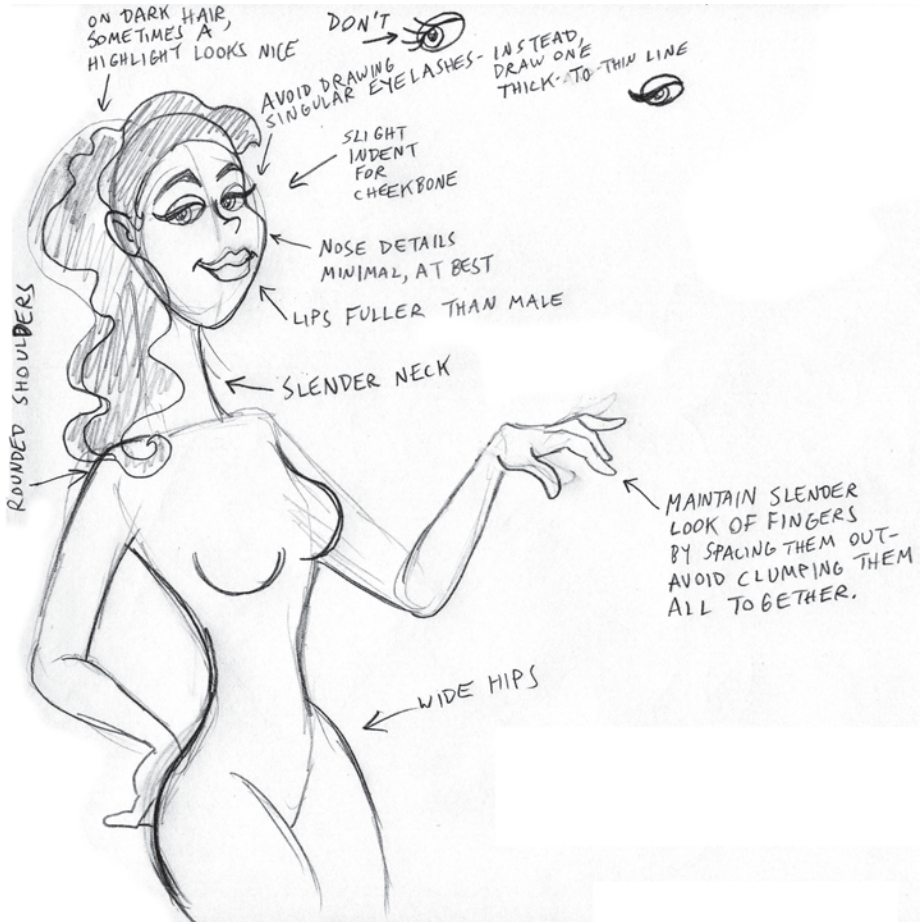 ON DARK HAIR,
SOMETIMES A
HIGHLIGHT LOOKS NICE
DON'T
AVOID DRAWING
SINGULAR EYELASHES- INSTEAD,
DRAW ONE
THICK-TO-THIN LINE
SLIGHT
INDENT
FOR
CHEEKBONE
NOSE DETAILS
MINIMAL, AT BEST
LIPS FULLER THAN MALE
SLENDER NECK
ROUNDED SHOULDERS
MAINTAIN SLENDER
LOOK OF FINGERS
BY SPACING THEM OUT-
AVOID CLUMPING THEM
ALL TOGETHER.
WIDE HIPS